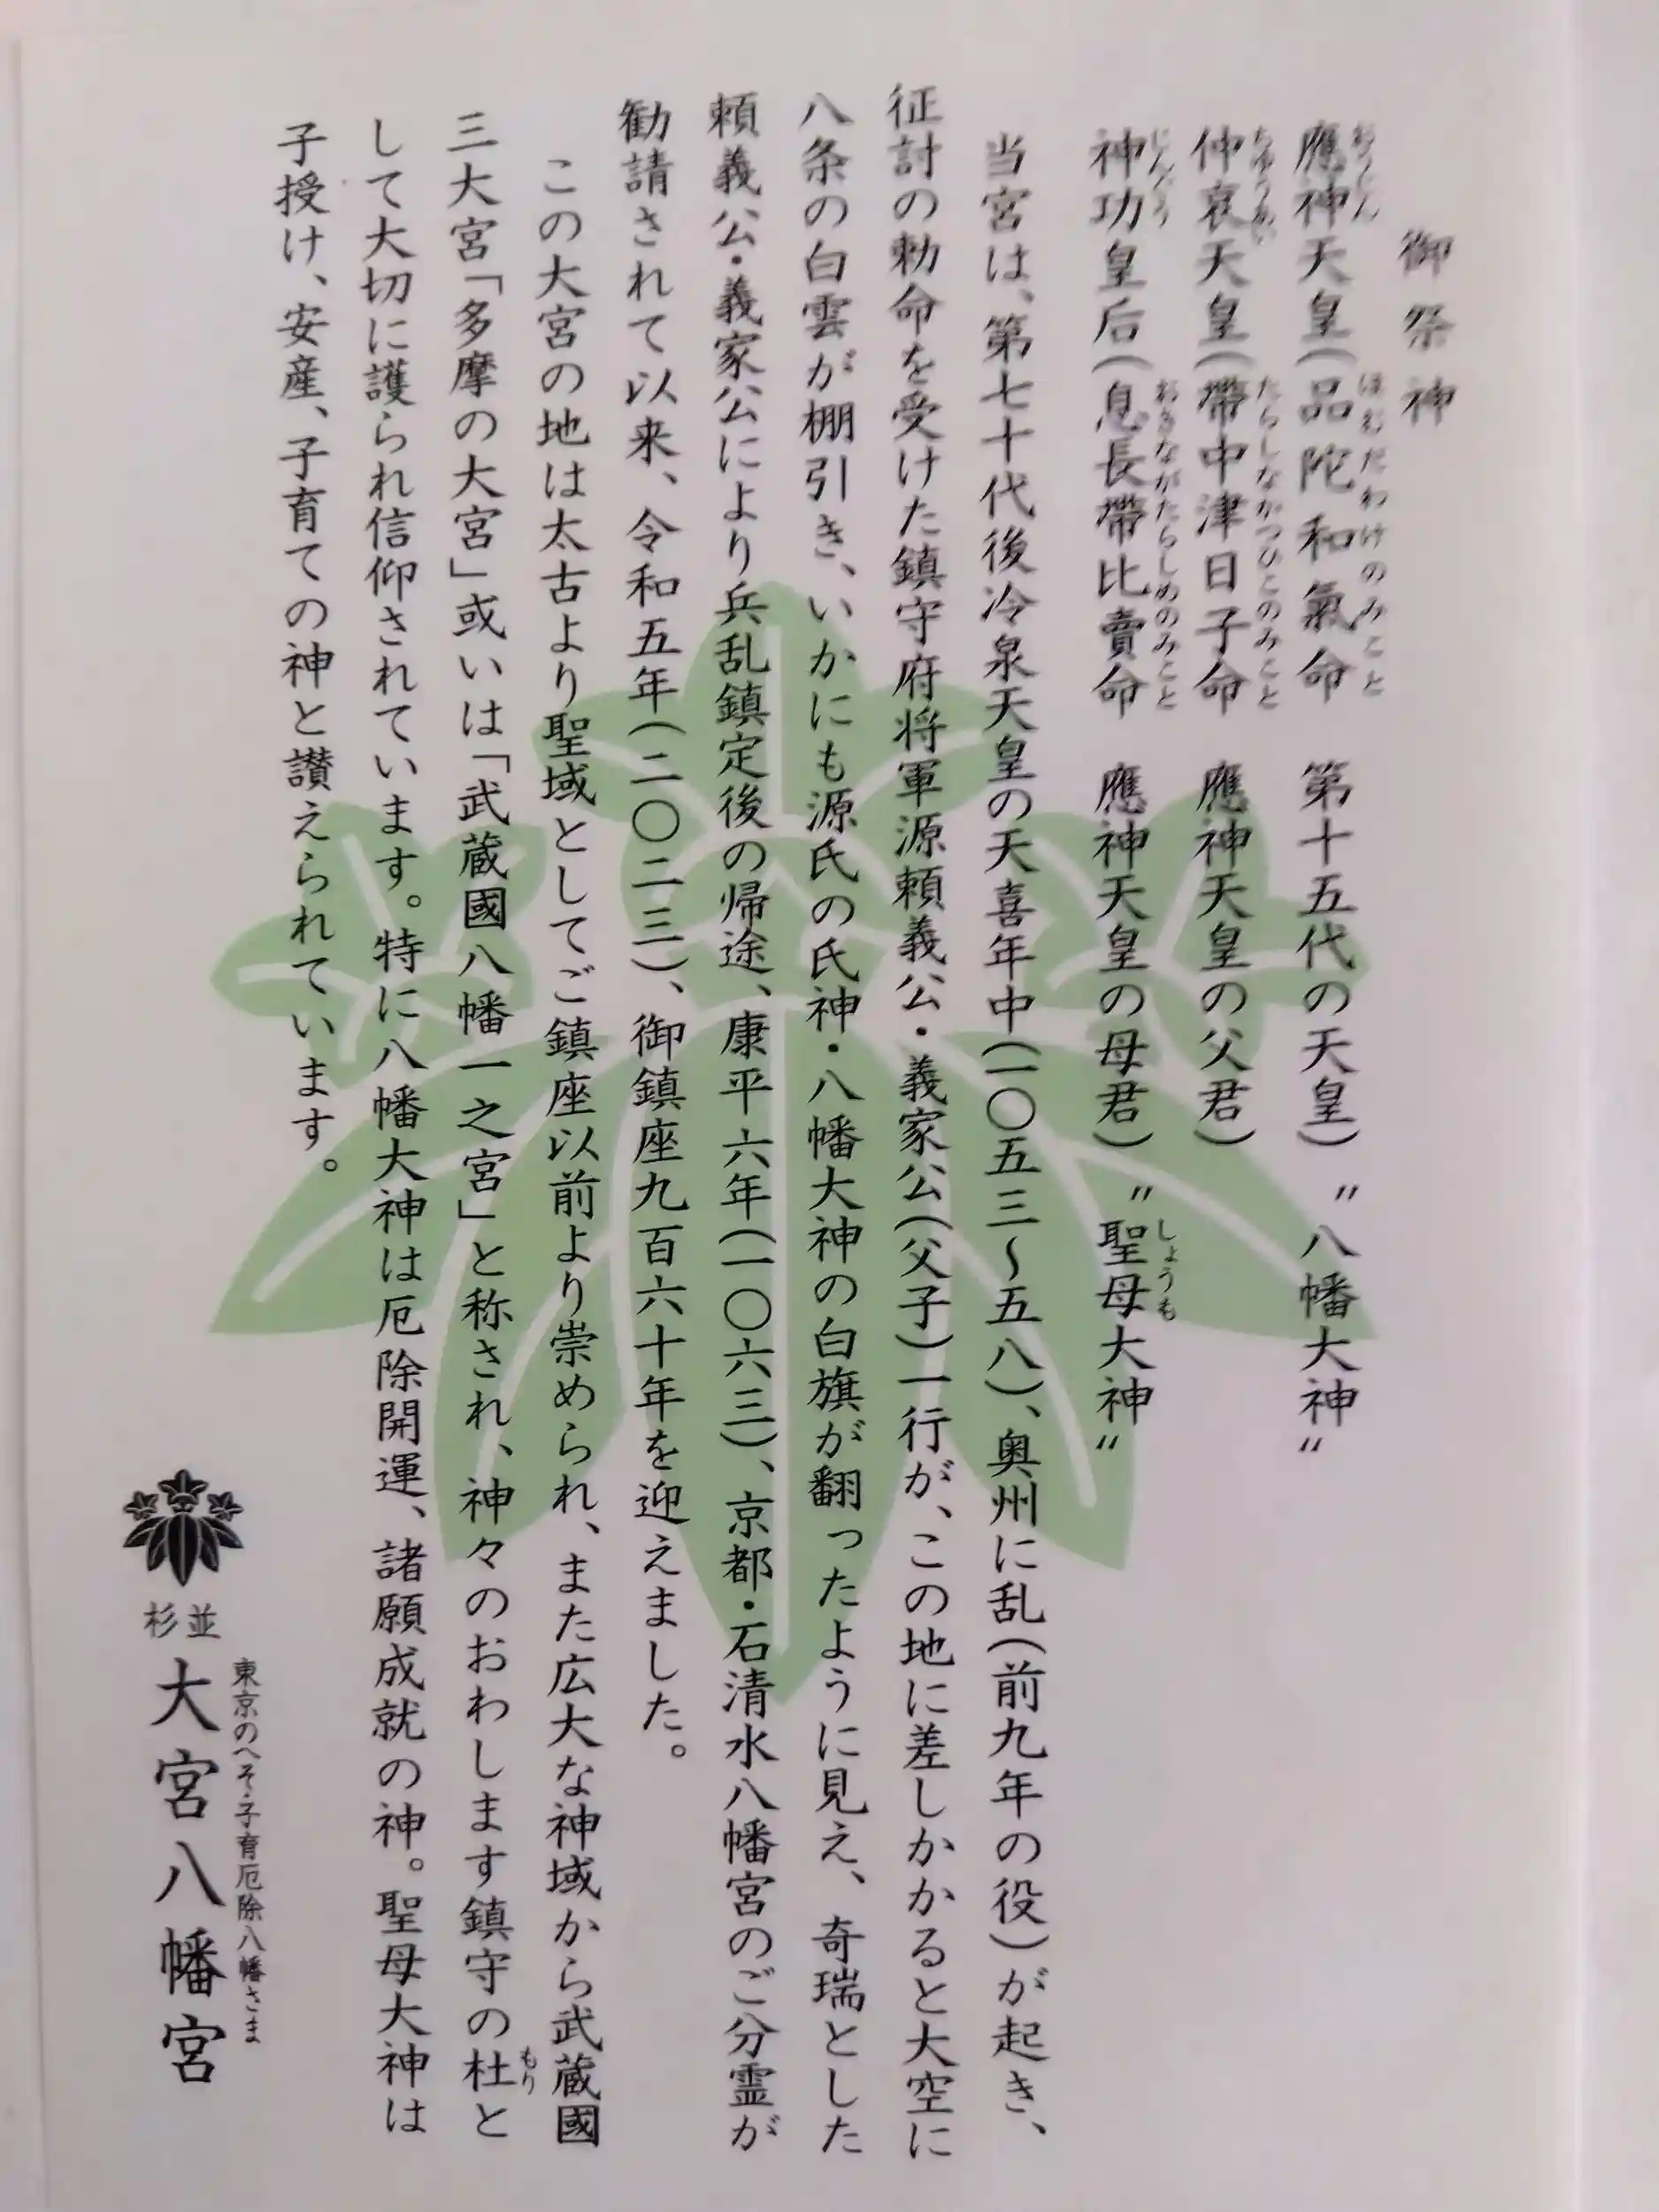 御祭神
應神天皇(品陀和氣命　第十五代の天皇)　〝八幡大神〟
おうじん　ほむだわけのみこと
仲哀天皇(帶中津日子命　應神天皇の父君)
ちゅうあい　たらしなかつひこのみこと
神功皇后(息長帶比賣命　應神天皇の母君)　〝聖母大神〟
じんぐう　おきながたらしめのみこと　しょうも
当宮は、第七十代後冷泉天皇の天喜年中(一〇五三〜五八)、奥州に乱(前九年の役)が起き、
征討の勅命を受けた鎮守府将軍源頼義公・義家公(父子)一行が、この地に差しかかると大空に
八条の白雲が棚引き、いかにも源氏の氏神・八幡大神の白旗が翻ったように見え、奇瑞とした
頼義公・義家公により兵乱鎮定後の帰途、康平六年(一〇六三)、京都・石清水八幡宮のご分霊が
勧請されて以来、令和五年(二〇二三)、御鎮座九百六十年を迎えました。
この大宮の地は太古より聖域としてご鎮座以前より崇められ、また広大な神域から武蔵國
三大宮「多摩の大宮」或いは「武蔵國八幡一之宮」と称され、神々のおわします鎮守の杜と
もり
して大切に護られ信仰されています。特に八幡大神は厄除開運、諸願成就の神。聖母大神は
子授け、安産、子育ての神と讃えられています。
東京のへそ・子育厄除八幡さま
杉並
大宮八幡宮